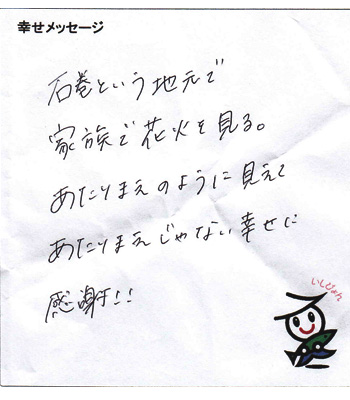 幸せメッセージ
石巻という地元で
家族で花火を見る。
あたりまえのように見えて
あたりまえじゃない幸せに
感謝!!
いしぴょん